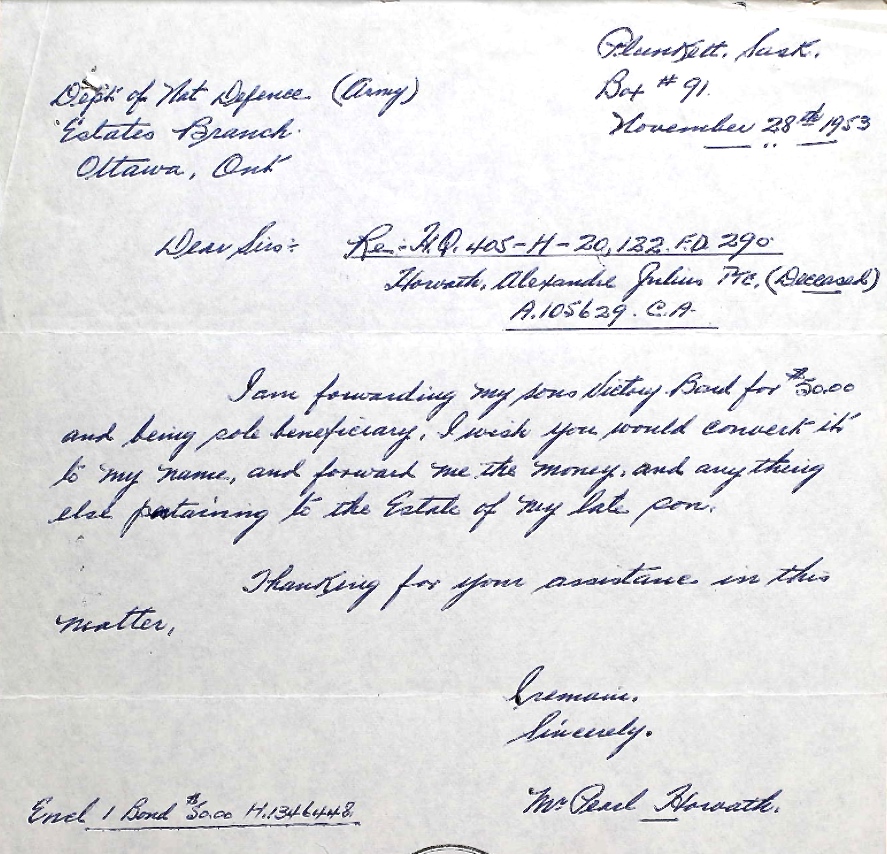 Plunkett. Sask.
Box # 91.
November 28th 1953
Dept of Nat Defence (Army)
Estates Branch.
Ottawa, Ont
Dear Sirs:- Re:- H.Q. 405-H-20,122. F.D. 290
Horvath, Alexandre Julius Pte. (Deceased)
A.105629. C.A.
I am forwarding my sons Victory Bond for $50.00
and being sole beneficiary, I wish you would convert it
to my name, and forward me the money, and anything
else pertaining to the Estate of my late son.
Thanking for your assistance in this
matter,
I remain.
Sincerely.
Mrs Pearl Horvath.
Encl 1 Bond $50.00 H.1346448.